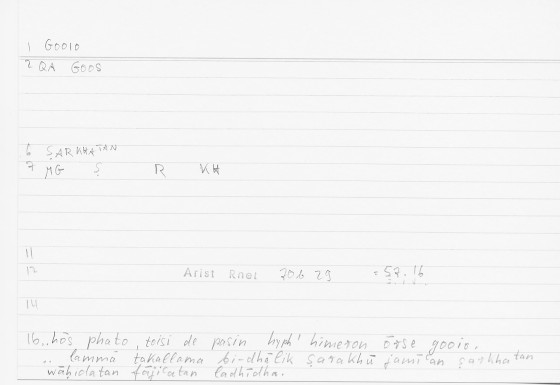 1 GOOIO
2 QA GOOS
6 ṢARKHATAN
7 MG Ṣ R KH
11
12 Arist Rhet 20b 29 = 52.16
14
16 ..hōs phato, toisi de pasin hyph' himeron ōrse gooio.
.. lammā takallama bi-dhālik ṣarakhū jamī'an ṣarkhatan
wāḥidatan fāji'atan ladhīdha.